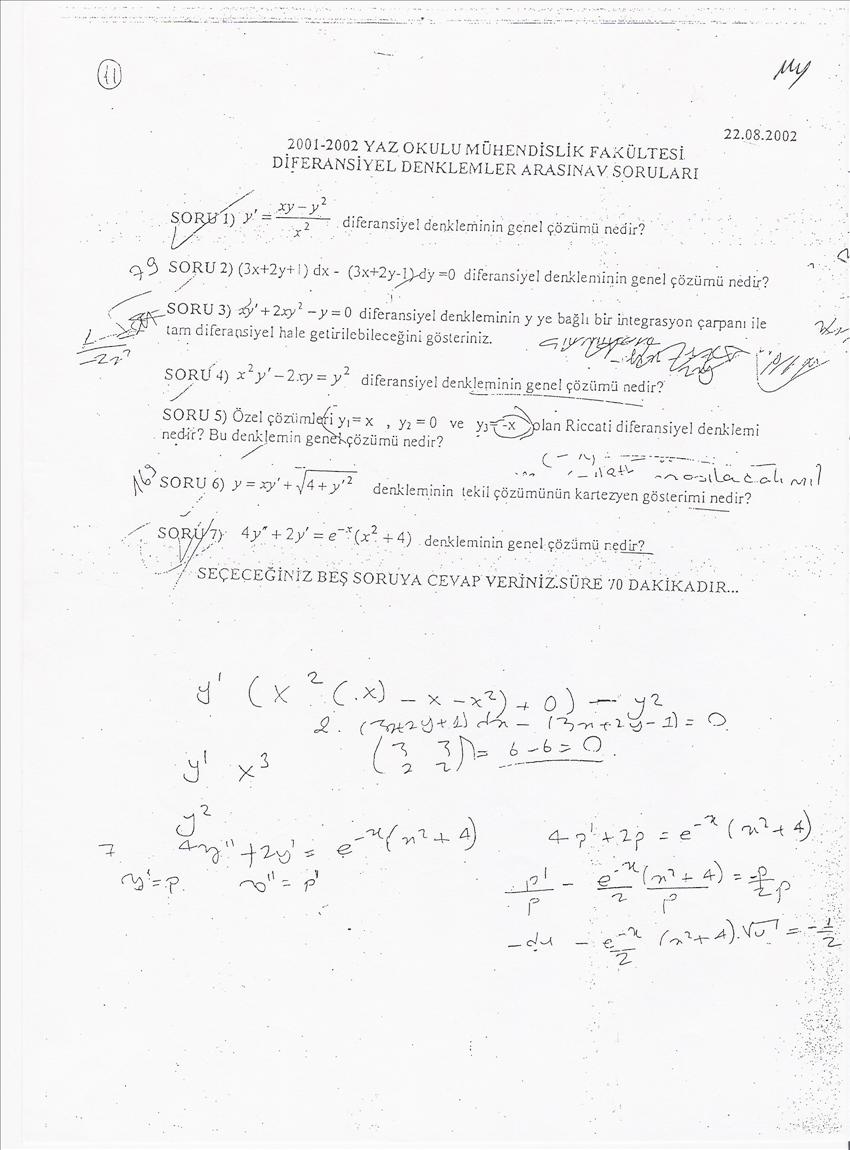 11
22.08.2002
2001-2002 YAZ OKULU MÜHENDİSLİK FAKÜLTESİ
DİFERANSİYEL DENKLEMLER ARASINAV SORULARI
SORU 1) y' = (xy − y²)/x² diferansiyel denkleminin genel çözümü nedir?
SORU 2) (3x+2y+1) dx - (3x+2y-1) dy =0 diferansiyel denkleminin genel çözümü nedir?
SORU 3) xy' + 2xy² − y = 0 diferansiyel denkleminin y ye bağlı bir integrasyon çarpanı ile
tam diferansiyel hale getirilebileceğini gösteriniz.
SORU 4) x²y' − 2xy = y² diferansiyel denkleminin genel çözümü nedir?
SORU 5) Özel çözümleri y₁= x , y₂ = 0 ve y₃= -x olan Riccati diferansiyel denklemi
nedir? Bu denklemin genel çözümü nedir?
SORU 6) y = xy' + √(4 + y'²) denkleminin tekil çözümünün kartezyen gösterimi nedir?
SORU 7) 4y'' + 2y' = e⁻ˣ(x² + 4) denkleminin genel çözümü nedir?
SEÇECEĞİNİZ BEŞ SORUYA CEVAP VERİNİZ.SÜRE 70 DAKİKADIR...
y' (x² (.x) − x − x²) + 0) − y²
2. (3x+2y+1) dx − (3x+2y−1) = 0
(3 3
2 2) = 6 − 6 = 0
y' x³
y²
7 4y'' + 2y' = e⁻ˣ(x² + 4) 4p' + 2p = e⁻ˣ (x² + 4)
y' = p. y'' = p'
p'/p − e⁻ˣ/2 (x² + 4)/p = −p/2p
−du − e⁻ˣ/2 (x² + 4).√u = −1/2